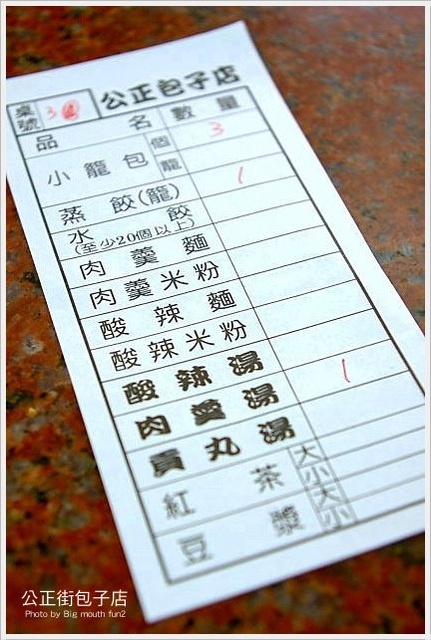 公正包子店
桌號 3
品名 數量
小籠包 個 3
籠
蒸餃(籠) 1
水餃
(至少20個以上)
肉羹麵
肉羹米粉
酸辣麵
酸辣米粉
酸辣湯 1
肉羹湯
貢丸湯
紅茶 大
小
豆漿 大
小
公正街包子店
Photo by Big mouth fun2